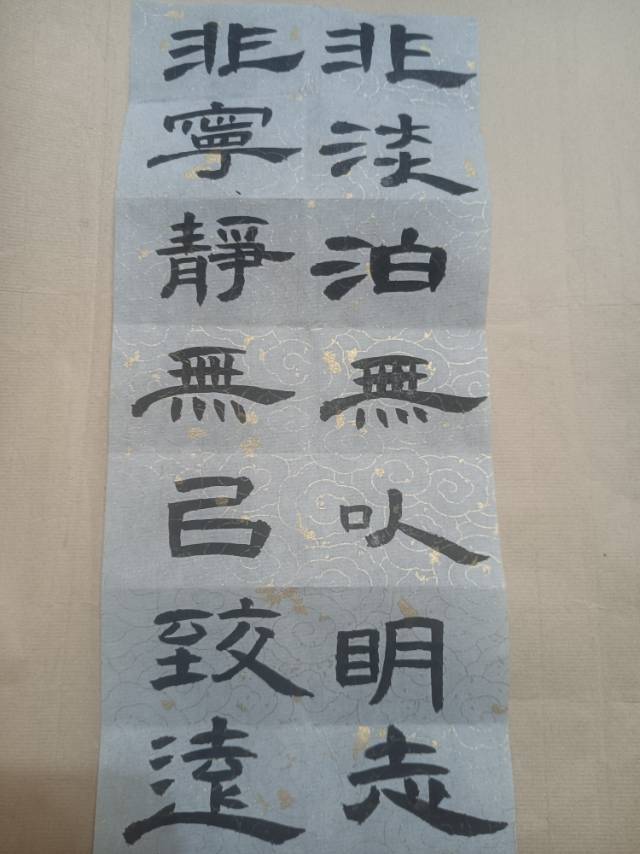 非淡泊無以明志
非寧靜無㠯致遠